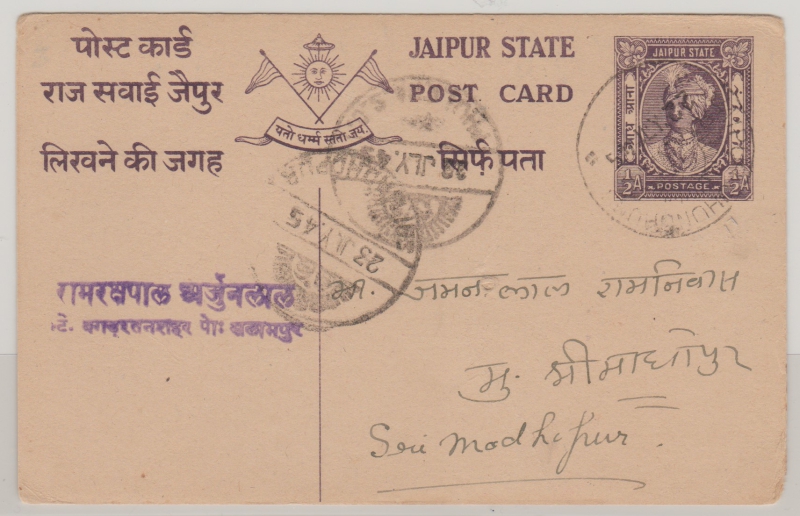 पोस्ट कार्ड
राज सवाई जैपुर
लिखने की जगह
यतो धर्म्म स्ततो जय:
JAIPUR STATE
POST CARD
सिर्फ़ पता
JAIPUR STATE
आध आना
½A
POSTAGE
½A
23 JLY.45
23 JLY
रामरक्षपाल अर्जुनलाल
पो:
जमन लाल रामनिवास
मु. श्रीमाधोपुर
Sri Madhopur.